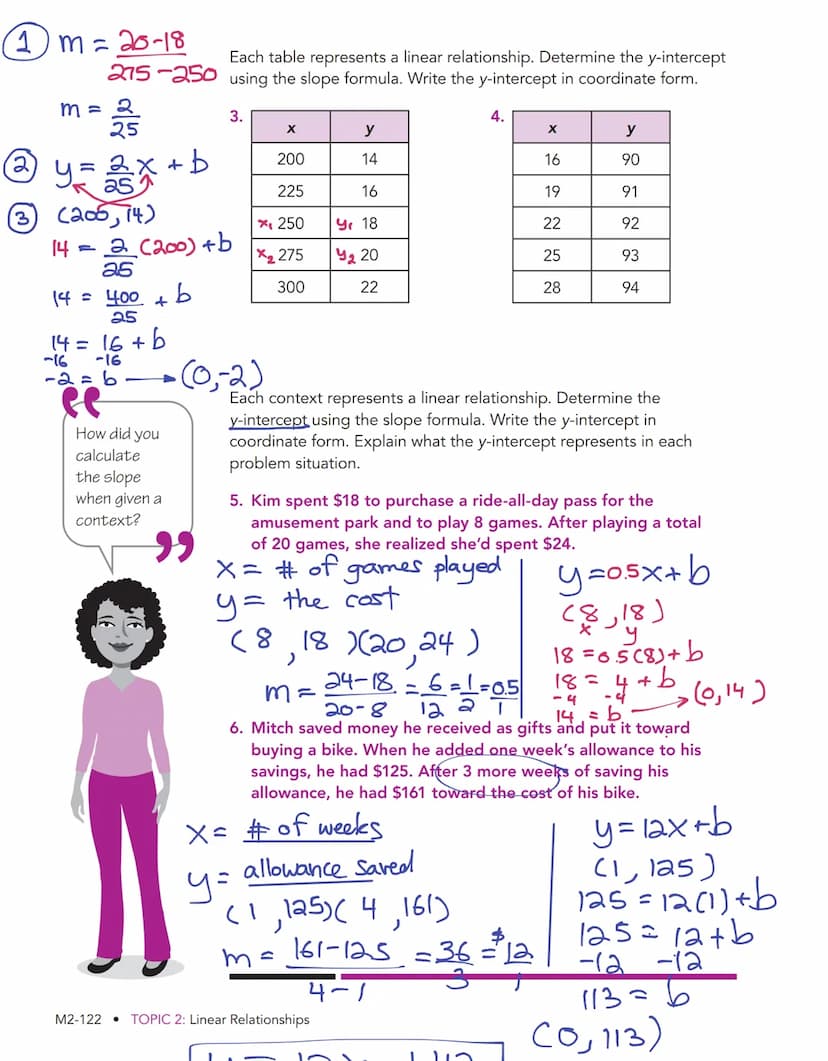 ① m = 20-18
275-250
m = 2
25
② y = 2x + b
25
③ (200, 14)
14 = 2 (200) + b
25
14 = 400 + b
25
14 = 16 + b
-16 -16
-2 = b → (0,-2)
Each table represents a linear relationship. Determine the y-intercept
using the slope formula. Write the y-intercept in coordinate form.
3.
x y
200 14
225 16
x₁ 250 y₁ 18
x₂ 275 y₂ 20
300 22
4.
x y
16 90
19 91
22 92
25 93
28 94
Each context represents a linear relationship. Determine the
y-intercept using the slope formula. Write the y-intercept in
coordinate form. Explain what the y-intercept represents in each
problem situation.
How did you
calculate
the slope
when given a
context?
5. Kim spent $18 to purchase a ride-all-day pass for the
amusement park and to play 8 games. After playing a total
of 20 games, she realized she'd spent $24.
x = # of games played
y = the cost
(8, 18)(20, 24)
m = 24-18 = 6 = 1 = 0.5
20-8 12 2 1
y = 0.5x + b
(8, 18)
x y
18 = 0.5(8) + b
18 = 4 + b
-4 -4
14 = b → (0,14)
6. Mitch saved money he received as gifts and put it toward
buying a bike. When he added one week's allowance to his
savings, he had $125. After 3 more weeks of saving his
allowance, he had $161 toward the cost of his bike.
x = # of weeks
y = allowance saved
(1, 125)(4, 161)
m = 161-125 = 36 = $12
4-1 3 1
y = 12x + b
(1, 125)
125 = 12(1) + b
125 = 12 + b
-12 -12
113 = b
(0, 113)
M2-122 • TOPIC 2: Linear Relationships